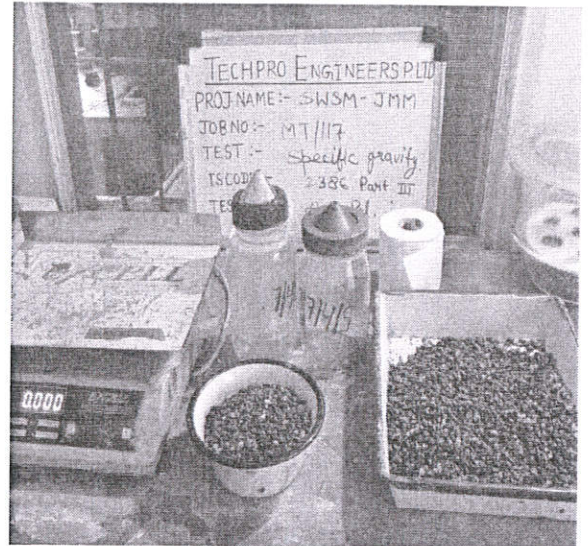 TECHPRO ENGINEERS P. LTD
PROJ NAME:- SWSM-JMM
JOB NO:- MT/117
TEST:- Specific gravity
IS CODE:- 2386 Part III
0.000